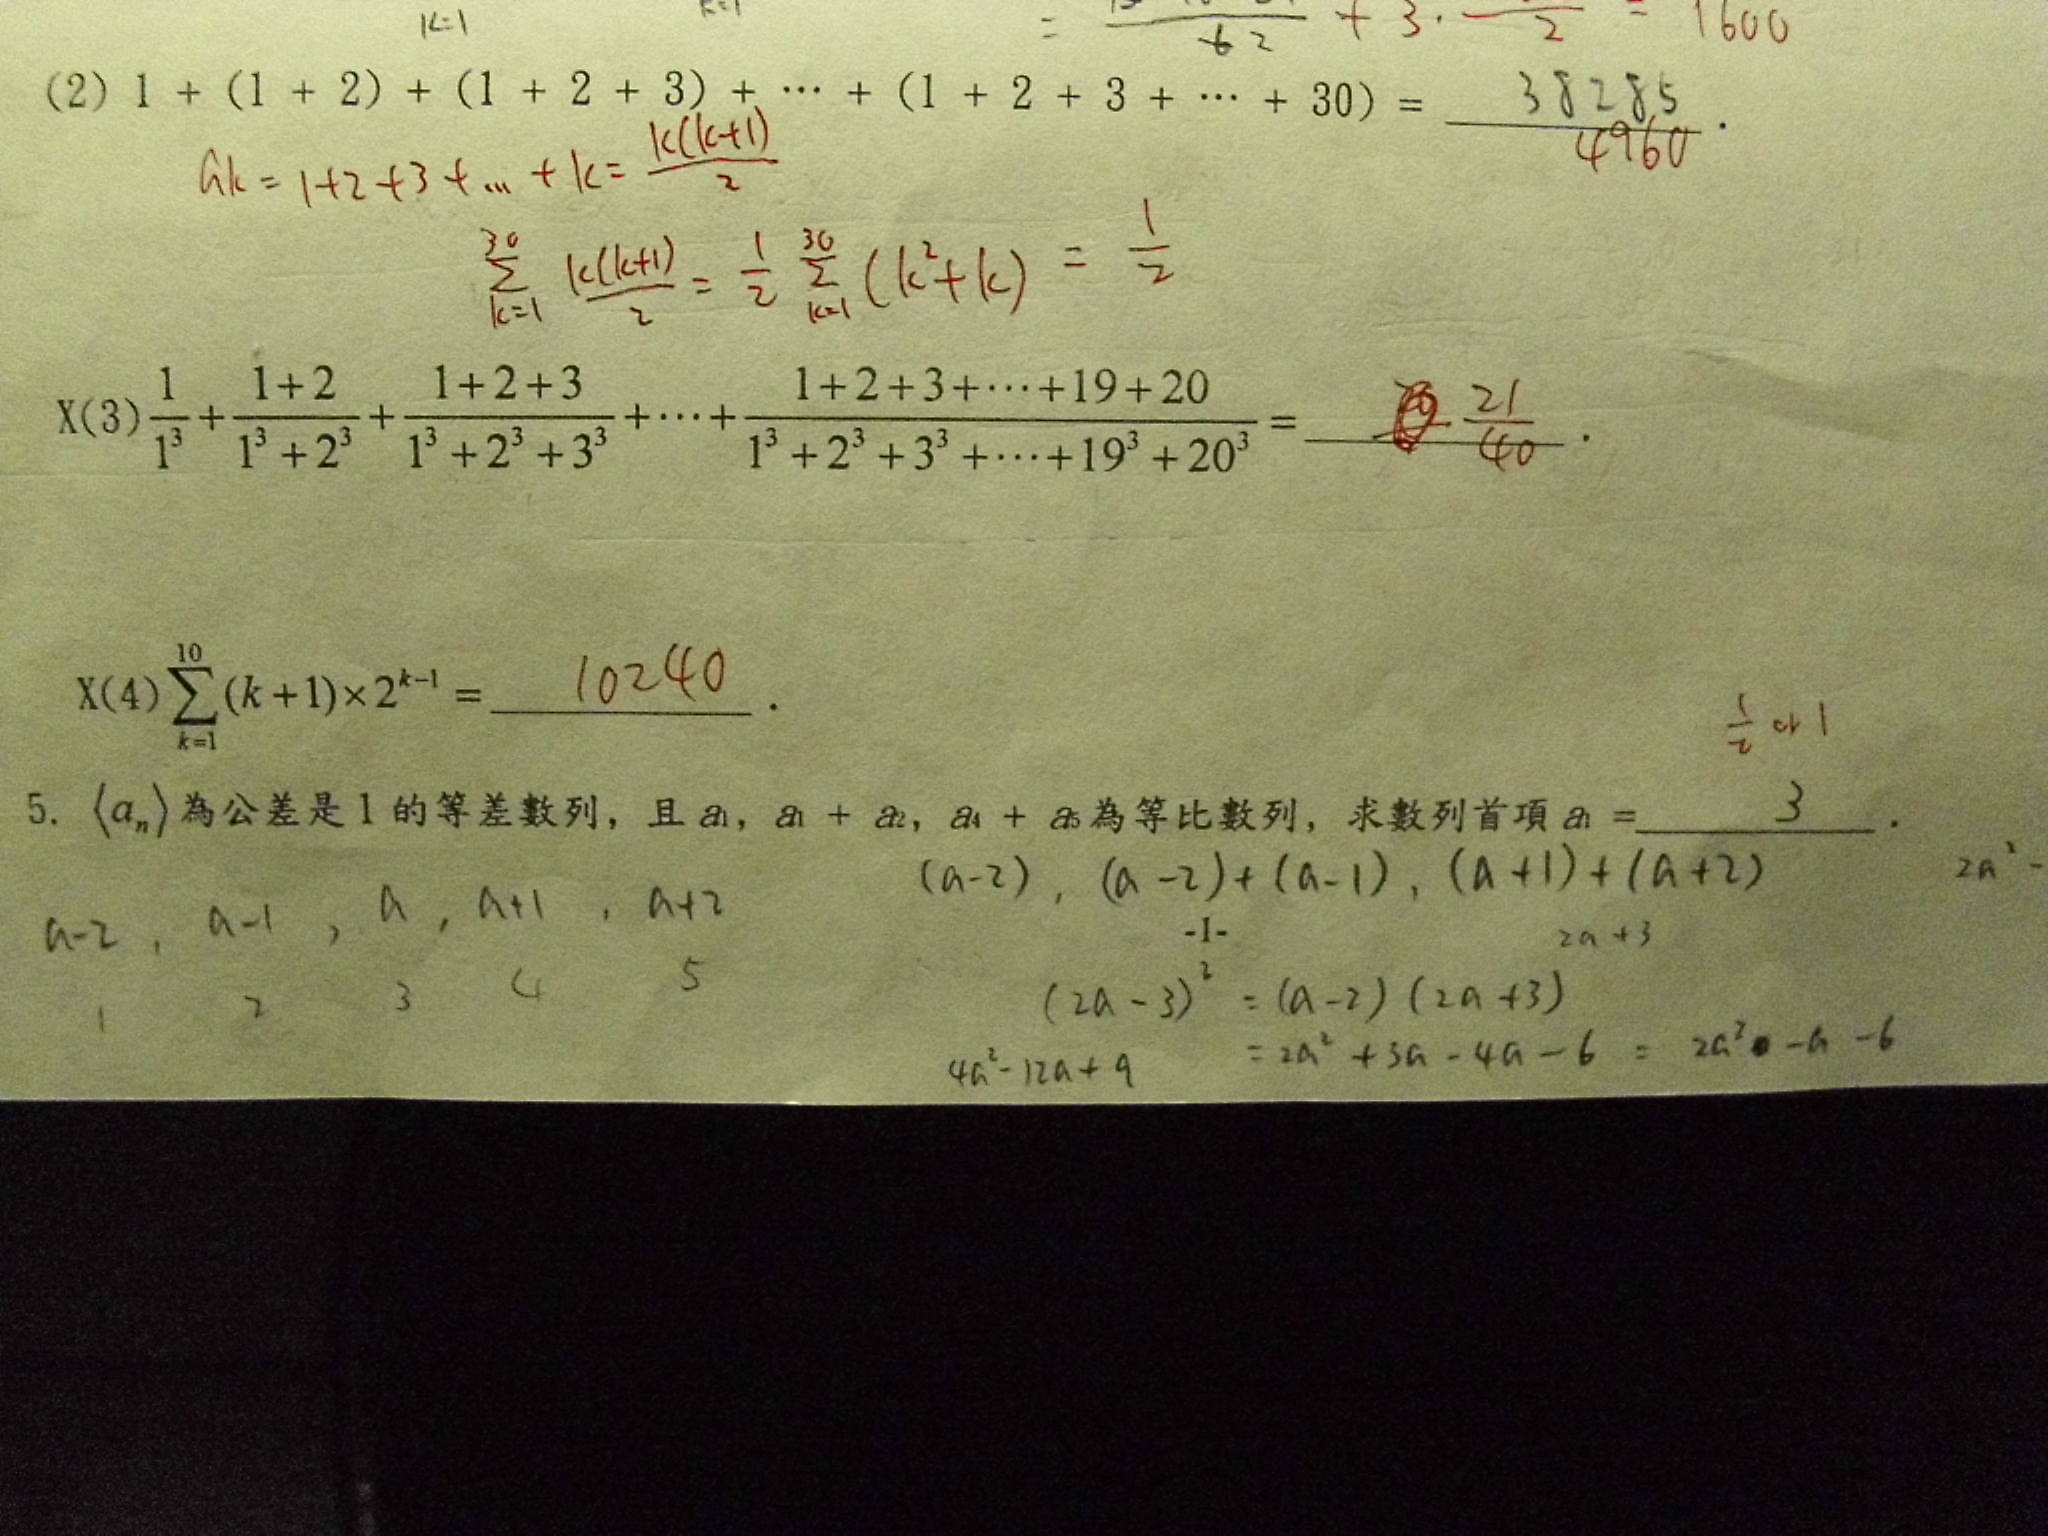 k=1 k=1
= 62 + 3 · 2 = 1600
(2) 1 + (1 + 2) + (1 + 2 + 3) + ⋯ + (1 + 2 + 3 + ⋯ + 30) = 38285 .
4960
ak = 1+2+3+...+k = k(k+1)/2
30∑k=1 k(k+1)/2 = 1/2 30∑k=1 (k²+k) = 1/2
X(3) 1/1³ + (1+2)/(1³+2³) + (1+2+3)/(1³+2³+3³) +⋯+ (1+2+3+⋯+19+20)/(1³+2³+3³+⋯+19³+20³) = 21/40 .
X(4) 10∑k=1 (k+1)×2^(k-1) = 10240 .
1/2 or 1
5. ⟨aₙ⟩為公差是1的等差數列，且 a₁，a₁ + a₂，a₄ + a₅為等比數列，求數列首項 a₁ = 3 .
(a-2) , (a-2)+(a-1) , (a+1)+(a+2) 2a² -
a-2 , a-1 , a , a+1 , a+2
-1-
2a+3
1 2 3 4 5
(2a-3)² = (a-2)(2a+3)
4a²-12a+9 = 2a²+3a-4a-6 = 2a²-a-6